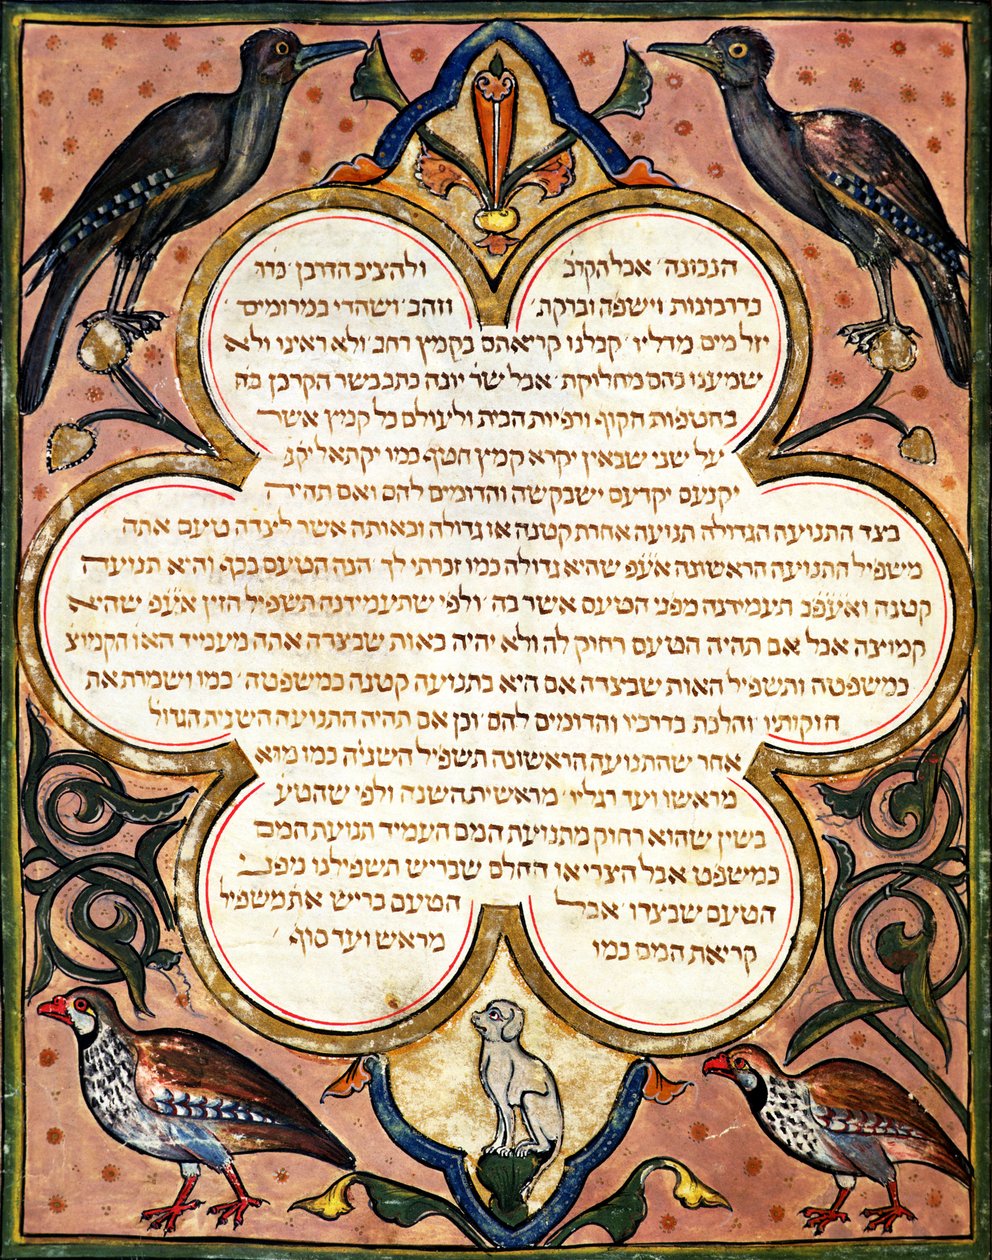 הנכונה׳ אבל הקוב ולהציב הדרבן׳ כדר
בדרבונות וישפה וברקת׳ וזהב׳ ושהדי במרומים׳
יזל מים מדליו׳ קבלנו קריאתם בקמץ רחב׳ ולא ראינו ולא
שמענו בהם מחלוקת׳ אבל יונה כתב בשער הקרבן
בחטפות הקוף ורפיות הבית ולעולם כל קמץ אשר
על שני שבאין יקרא קמץ חטף כמו יקתאל יקנ
יקנעם יקדעם והדומים להם ואם תהיה
בצד התנועה הגדולה תנועה אחרת קטנה או גדולה ובאותה אשר לצדה טעם אתה
משפיל התנועה הראשונה אעפ שהיא גדולה כמו זכרתי לך׳ הנה הטעם בכף והיא תנועה
קטנה ואעפכ תעמידנה מפני הטעם אשר בה׳ ולפי שתעמידנה תשפיל הזין אעפ שהיא
קמוצה אבל אם תהיה הטעם רחוק לה ולא יהיה באות שבצדה אתה מעמיד האו הקמוצ
כמשפטה ותשפיל האות שבצדה אם היא בתנועה קטנה כמשפטה׳ כמו ושמרת את
חוקותיו׳ והלכת בדרכיו והדומים להם׳ וכן אם תהיה התנועה השנית הגדול
אחר שהתנועה הראשונה תשפיל השניה כמו
מראשו ועד רגליו׳ מראשית השנה ולפי שהטע
בשין שהוא רחוק מתנועת המם העמיד תנועת המם
כמשפט אבל הצרי או החלם שבריש תשפילנו מפנ
הטעם שבצדו׳ אבל הטעם בריש את משפיל
קריאת המם כמו מראש ועד סוף׳